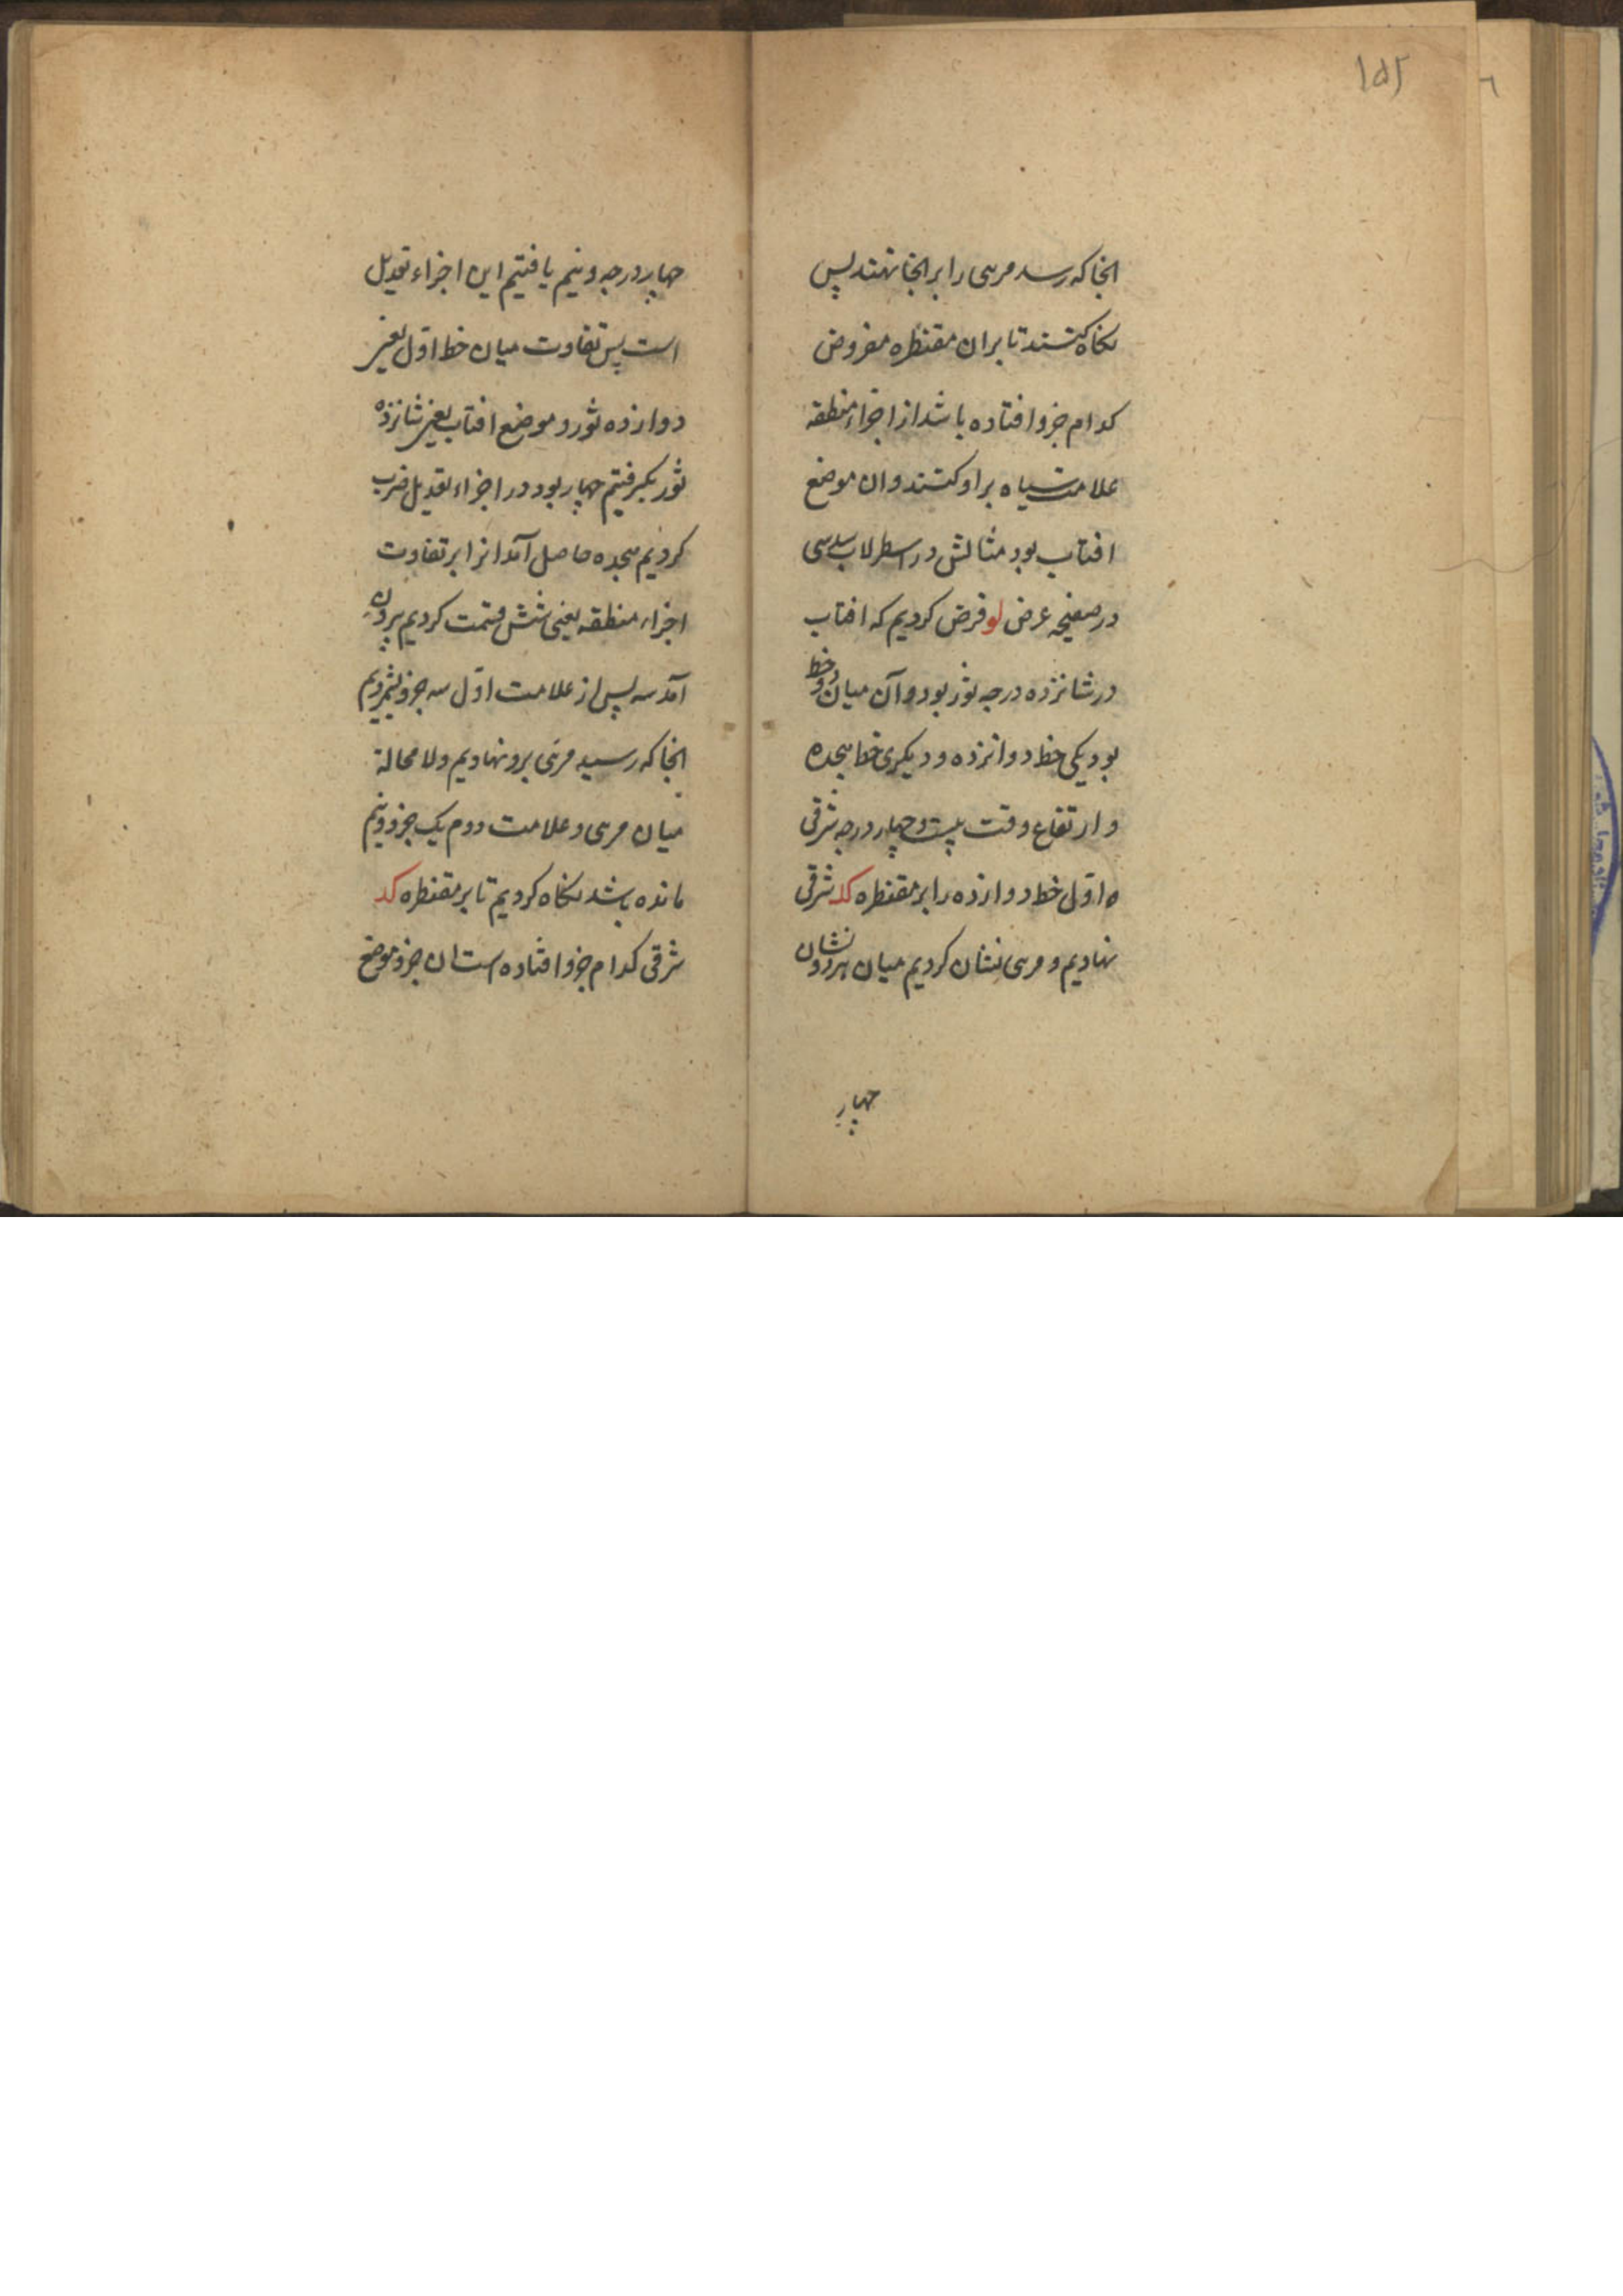 ۱۵۲
انجا که رسد مری را بر انجا نهند پس
نکاه کنند تا بران مقنطره مفروض
کدام جزو افتاده باشد از اجزاء منطقه
علامت سیاه بر او کنند و ان موضع
افتاب بود مثالش در اسطرلاب سدسی
در صفیحه عرض لو فرض کردیم که افتاب
در شانزده درجه ثور بود و آن میان دو خط
بود یکی خط دوانزده و دیکری خط هجده
و ارتفاع وقت بیست و چهار درجه شرقی
ه اول خط دوازده را بر مقنطره کد شرقی
نهادیم و مری نشان کردیم میان هر دو نشان
چهار
چهار درجه و نیم یافتیم این اجزاء تعدیل
است پس تفاوت میان خط اول یعنی
دوازده ثور و موضع افتاب یعنی شانزده
ثور بکرفتیم چهار بود در اجزاء تعدیل ضرب
کردیم هجده حاصل آمد انرا بر تفاوت
اجزاء منطقه یعنی شش قسمت کردیم بیرون
آمد سه پس از علامت اول سه جزو بشمردیم
انجا که رسید مری برو نهادیم ولا محالة
میان مری و علامت دوم یک جزو و نیم
مانده باشد نکاه کردیم تا بر مقنطره کد
شرقی کدام جزو افتاده است ان جزو موضع